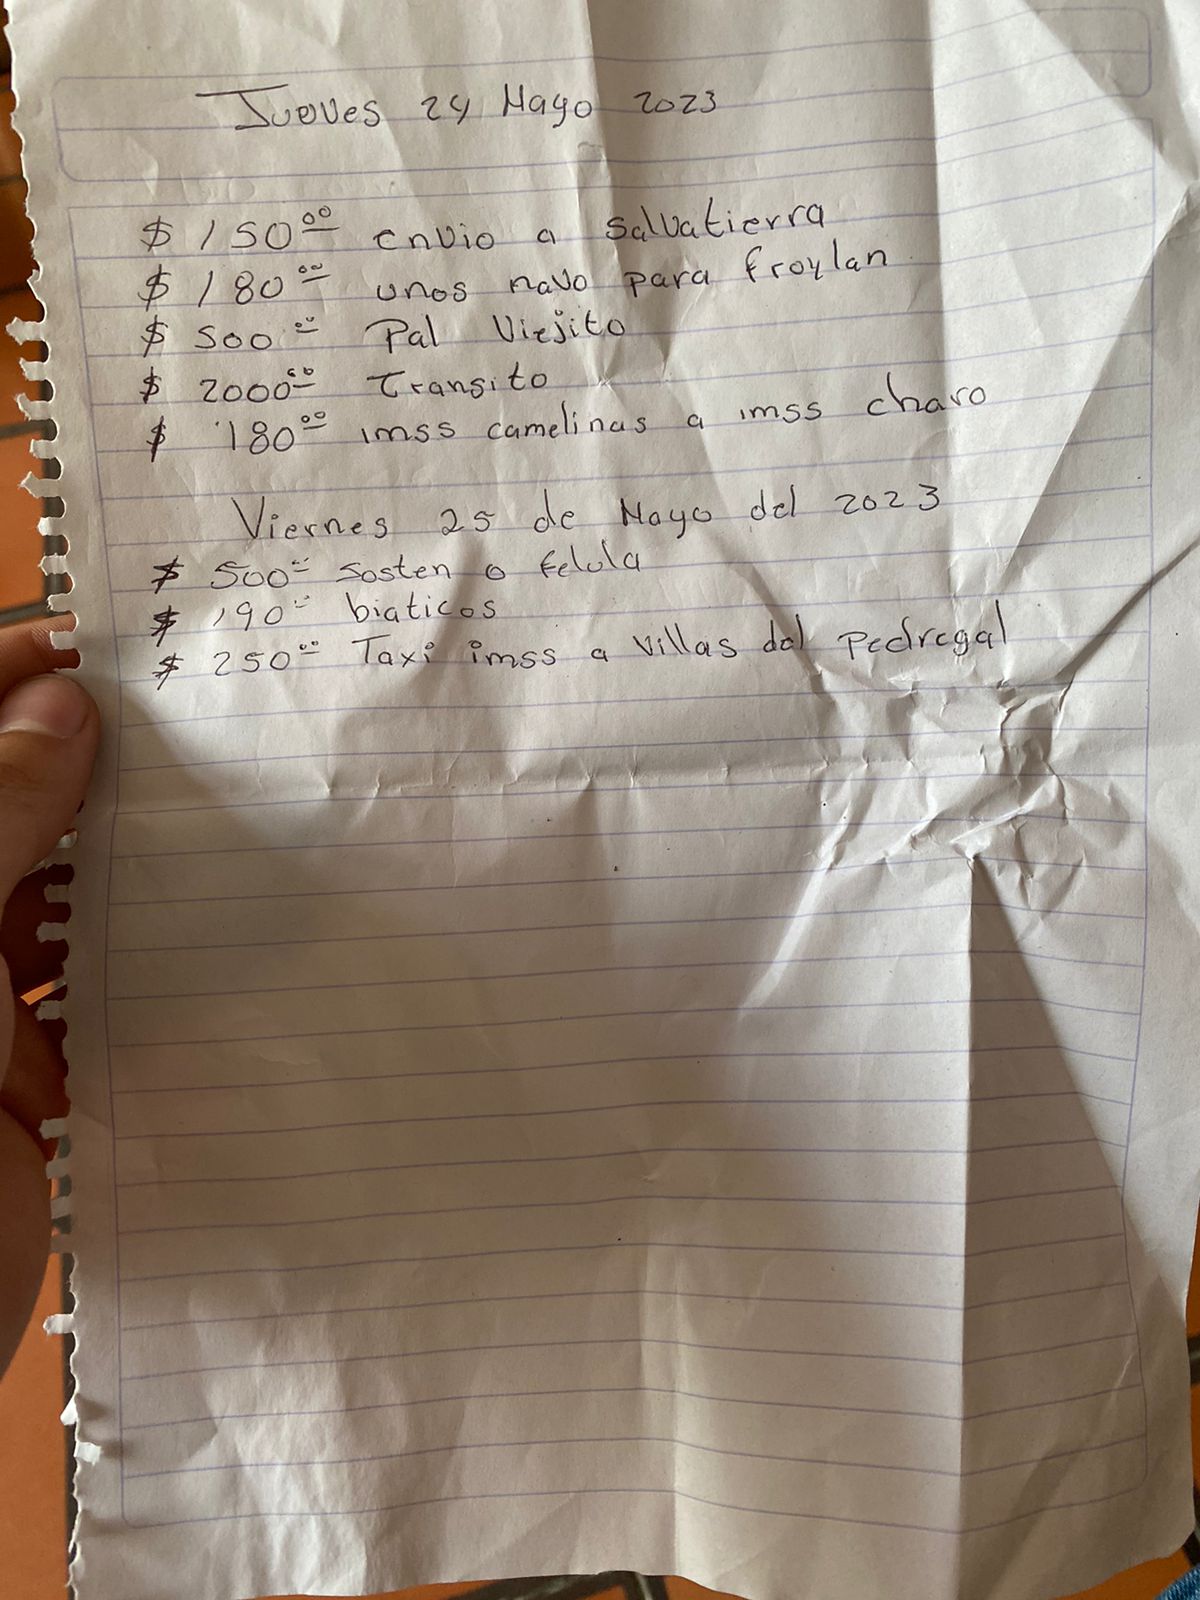 Jueves 24 Mayo 2023
$ 150.00 envio a salvatierra
$ 180.00 unos navo para froylan
$ 500.00 Pal Viejito
$ 2000.00 Transito
$ 180.00 imss camelinas a imss charo
Viernes 25 de Mayo del 2023
$ 500.00 sosten o felula
$ 190.00 biaticos
$ 250.00 Taxi imss a villas del pedregal